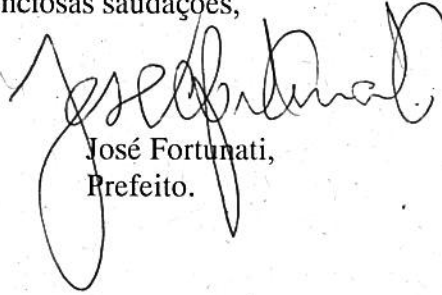 nciosas saudações,
José Fortunati
José Fortunati,
Prefeito.